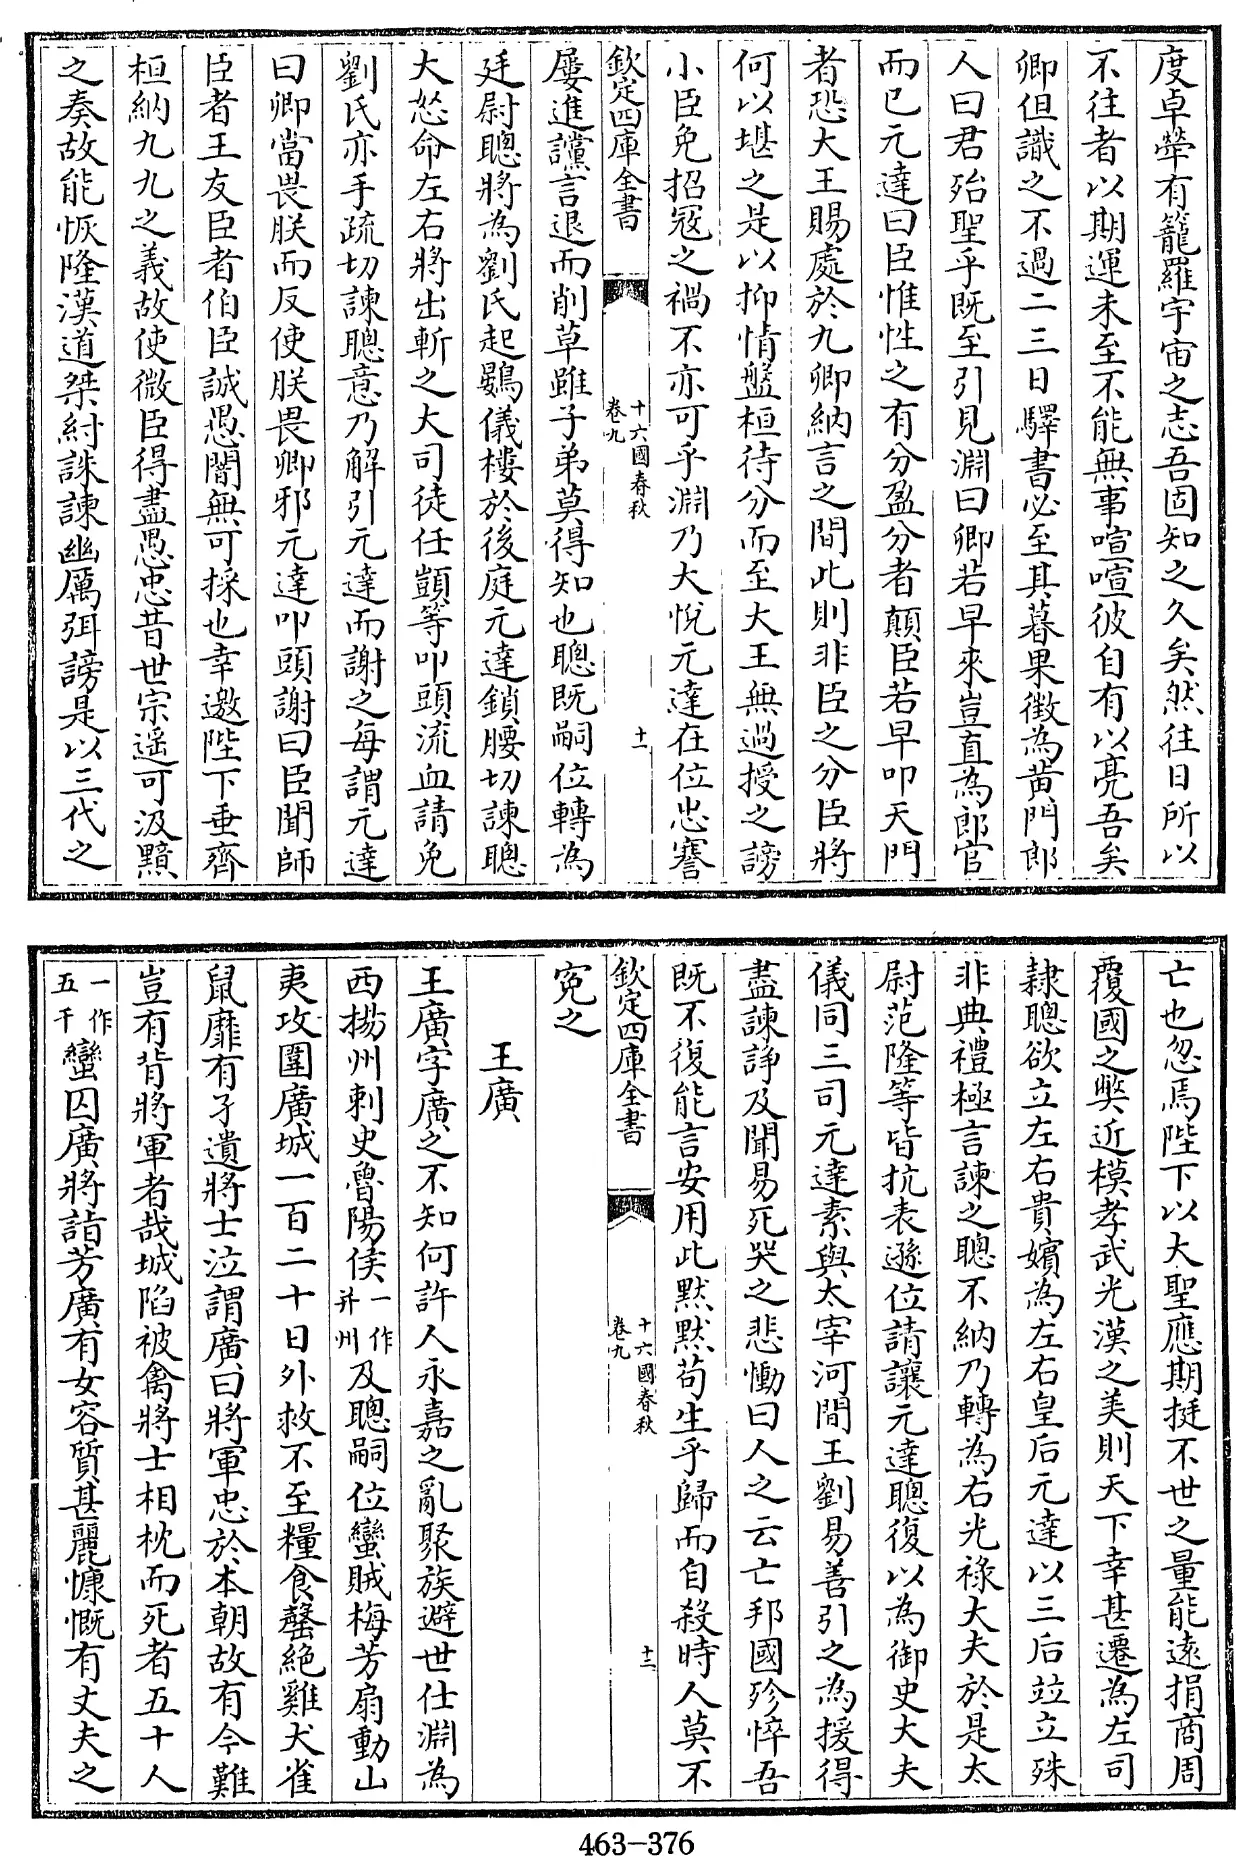 度卓犖有籠羅宇宙之志吾固知之久矣然往日所以
不往者以期運未至不能無事喧喧彼自有以亮吾矣
卿但識之不過二三日驛書必至其暮果徵為黃門郎
人曰君殆聖乎既至引見淵曰卿若早來豈直為郎官
而已元達曰臣惟性之有分盈分者顛臣若早叩天門
者恐大王賜處於九卿納言之間此則非臣之分臣將
何以堪之是以抑情盤桓待分而至大王無過授之謗
小臣免招冦之禍不亦可乎淵乃大悅元達在位忠謇
欽定四庫全書
十六國春秋
卷九
十一
屢進讜言退而削草雖子弟莫得知也聰既嗣位轉為
廷尉聰將為劉氏起鷃儀樓於後庭元達鎖腰切諫聰
大怒命左右將出斬之大司徒任顗等叩頭流血請免
劉氏亦手疏切諫聰意乃解引元達而謝之每謂元達
曰卿當畏朕而反使朕畏卿邪元達叩頭謝曰臣聞師
臣者王友臣者伯臣誠愚闇無可採也幸邀陛下垂齊
桓納九九之義故使微臣得盡愚忠昔世宗遥可汲黯
之奏故能恢隆漢道桀紂誅諫幽厲弭謗是以三代之
亡也忽焉陛下以大聖應期挺不世之量能遠捐商周
覆國之弊近模孝武光漢之美則天下幸甚遷為左司
隸聰欲立左右貴嬪為左右皇后元達以三后竝立殊
非典禮極言諫之聰不納乃轉為右光祿大夫於是太
尉范隆等皆抗表遜位請讓元達聰復以為御史大夫
儀同三司元達素與太宰河間王劉易善引之為援得
盡諫諍及聞易死哭之悲慟曰人之云亡邦國殄悴吾
既不復能言安用此默默苟生乎歸而自殺時人莫不
欽定四庫全書
十六國春秋
卷九
十二
寃之
王廣
王廣字廣之不知何許人永嘉之亂聚族避世仕淵為
西揚州刺史魯陽侯一作并州及聰嗣位蠻賊梅芳扇動山
夷攻圍廣城一百二十日外救不至糧食罄絕雞犬雀
鼠靡有孑遺將士泣謂廣曰將軍忠於本朝故有今難
豈有背將軍者哉城陷被禽將士相枕而死者五十人
一作五千蠻囚廣將詣芳廣有女容質甚麗慷慨有丈夫之
463-376